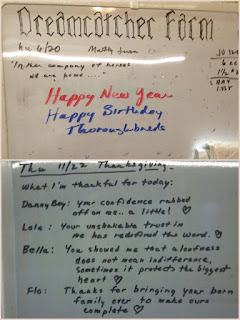 Dreamcatcher Farm
4/20
"In the company of horses
we are home...."
Happy New Year
Happy Birthday
Thoroughbreds
Thu 11/22 Thanksgiving
What I'm thankful for today:
Danny Boy: your confidence rubbed
off on me.. a little! ♡
Lola: Your unshakable trust in
me has redefined the word. ♡
Bella: You showed me that aloofness
does not mean indifference,
Sometimes it protects the biggest
heart ♡
Flo: Thanks for bringing your barn
family over to make ours
complete ♡